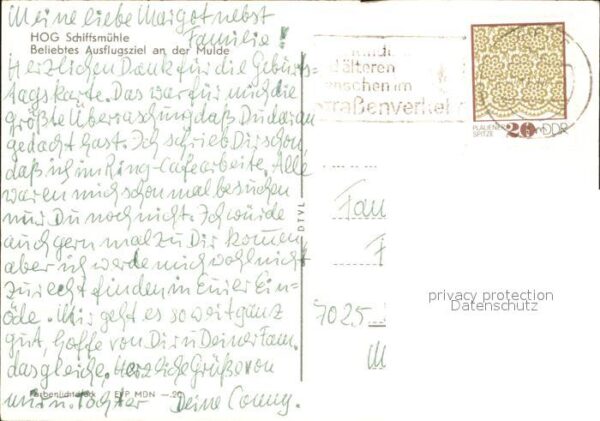 Meine liebe Margot nebst
Familie!
HOG Schiffsmühle
Beliebtes Ausflugsziel an der Mulde
Herzlichen Dank für die Geburts-
tagskarte. Das war für mich die
größte Überraschung daß Du daran
gedacht hast. Ich schrieb Dir schon
daß ich im Ring-Cafe arbeite. Alle
waren mich schon mal besuchen
nur Du noch nicht. Ich würde
auch gern mal zu Dir kommen
aber ich werde mich wohl nicht
zurecht finden in Eurer Ein-
öde. Mir geht es soweit ganz
gut, hoffe von Dir u Deiner Fam.
das gleiche. Herzliche Grüße von
mir u. Tochter Deine Conny.
EVP MDN -.20
DTVL
älteren
enschen im
traßenverkehr
PLAUENER
SPITZE
20
DDR
Fam
F
7025
M
privacy protection
Datenschutz